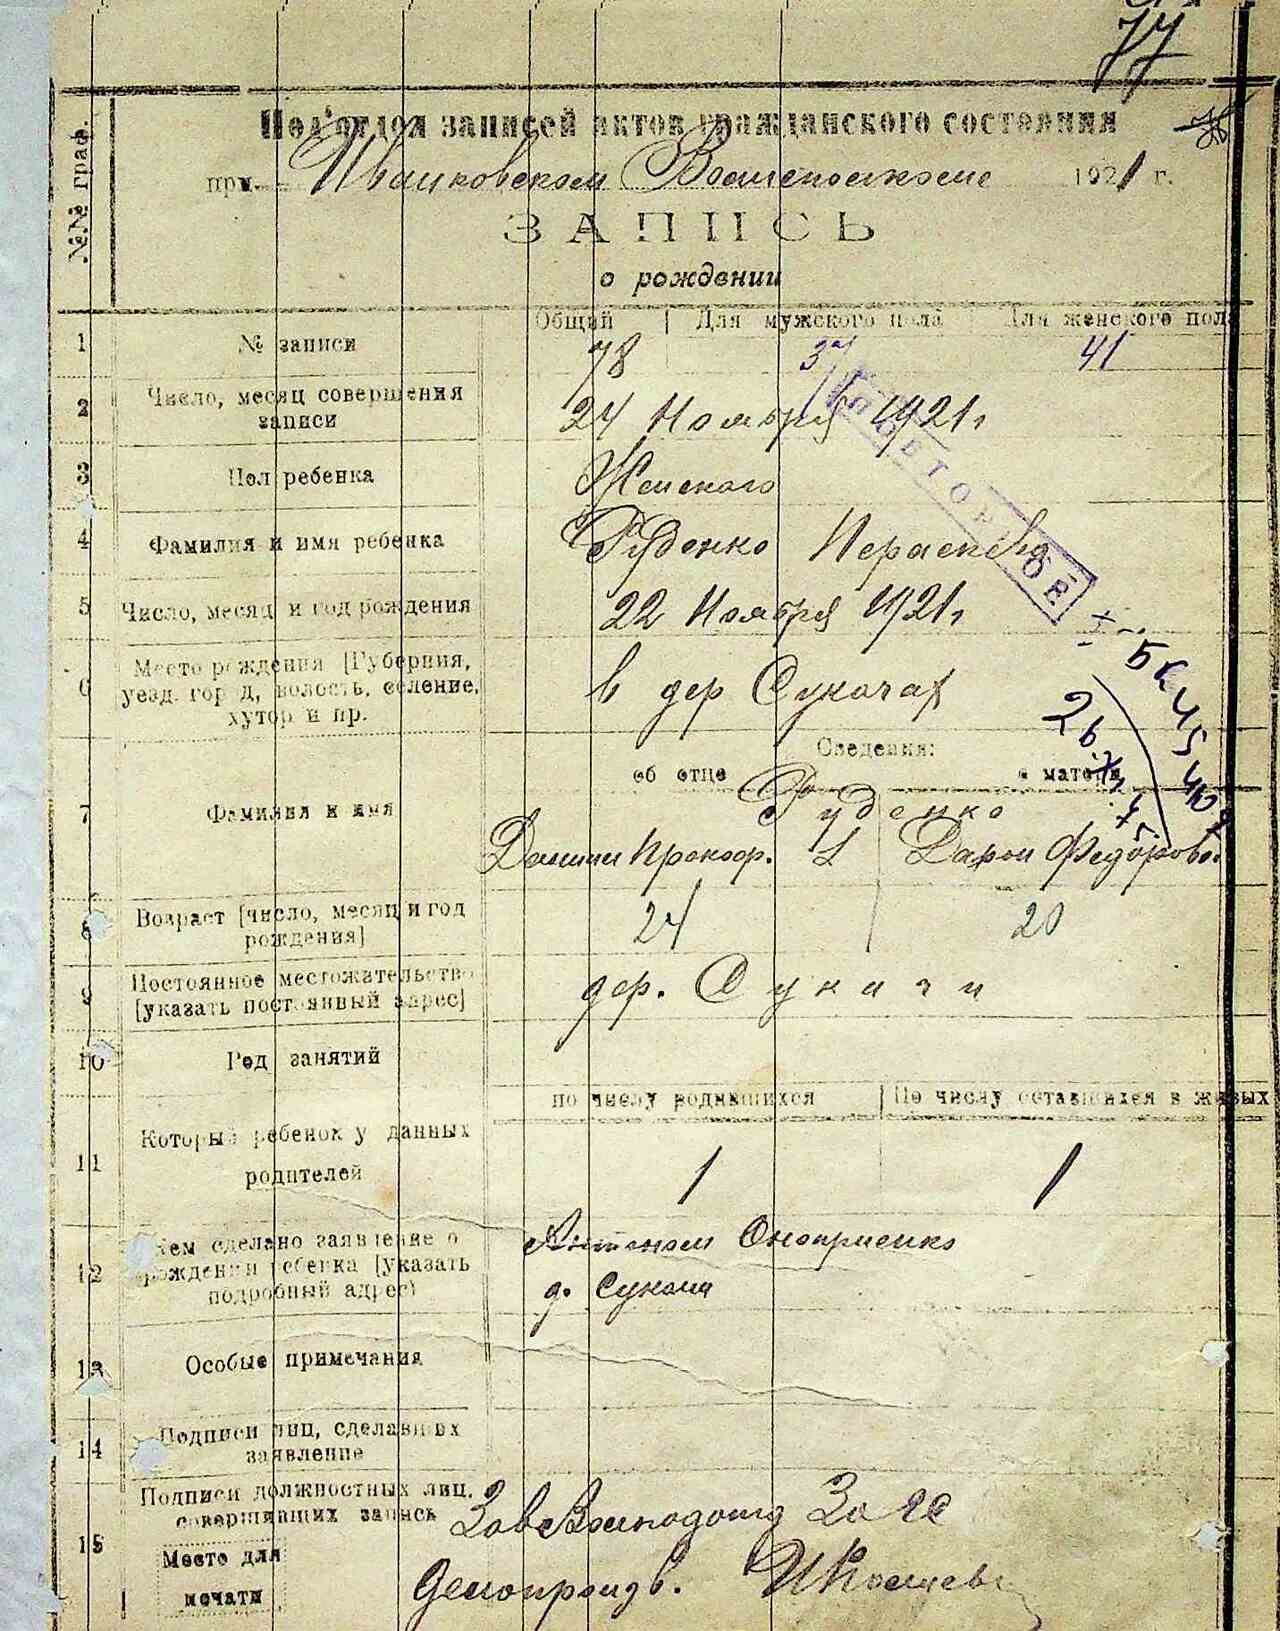 77
Под'отдел записей актов гражданского состояния
при Иванковском Волисполкоме 1921 г.
№№ граф.
ЗАПИСЬ
о рождении
Общий | Для мужского пола | Для женского пола
1 № записи 78 37 41
2 Число, месяц совершения записи 24 Ноября 1921 г
ПОВТОРНОЕ
3 Пол ребенка Женского
4 Фамилия и имя ребенка Руденко Параскева
5 Число, месяц и год рождения 22 Ноября 1921 г
6 Место рождения [Губерния, уезд, город, волость, селение, хутор и пр. в дер Сукачах
Сведения:
об отце о матери
7 Фамилия и имя Руденко
Прокоф. Дарьи Федорово.
8 Возраст [число, месяц и год рождения] 24 20
9 Постоянное местожательство [указать постоянный адрес] дер. Сукачи
10 Род занятий
по числу родившихся | По числу оставшихся в живых
11 Который ребенок у данных родителей 1 1
12 Кем сделано заявление о рождении ребенка [указать подробный адрес) Антоном Оноприенко
д. Сукачи
13 Особые примечания
14 Подписи лиц, сделавших заявление
15 Подписи должностных лиц, совершивших запись
Место для печати
Делопроизв.